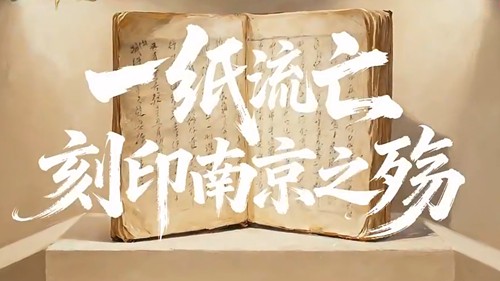 一纸流亡
刻印南京之殇